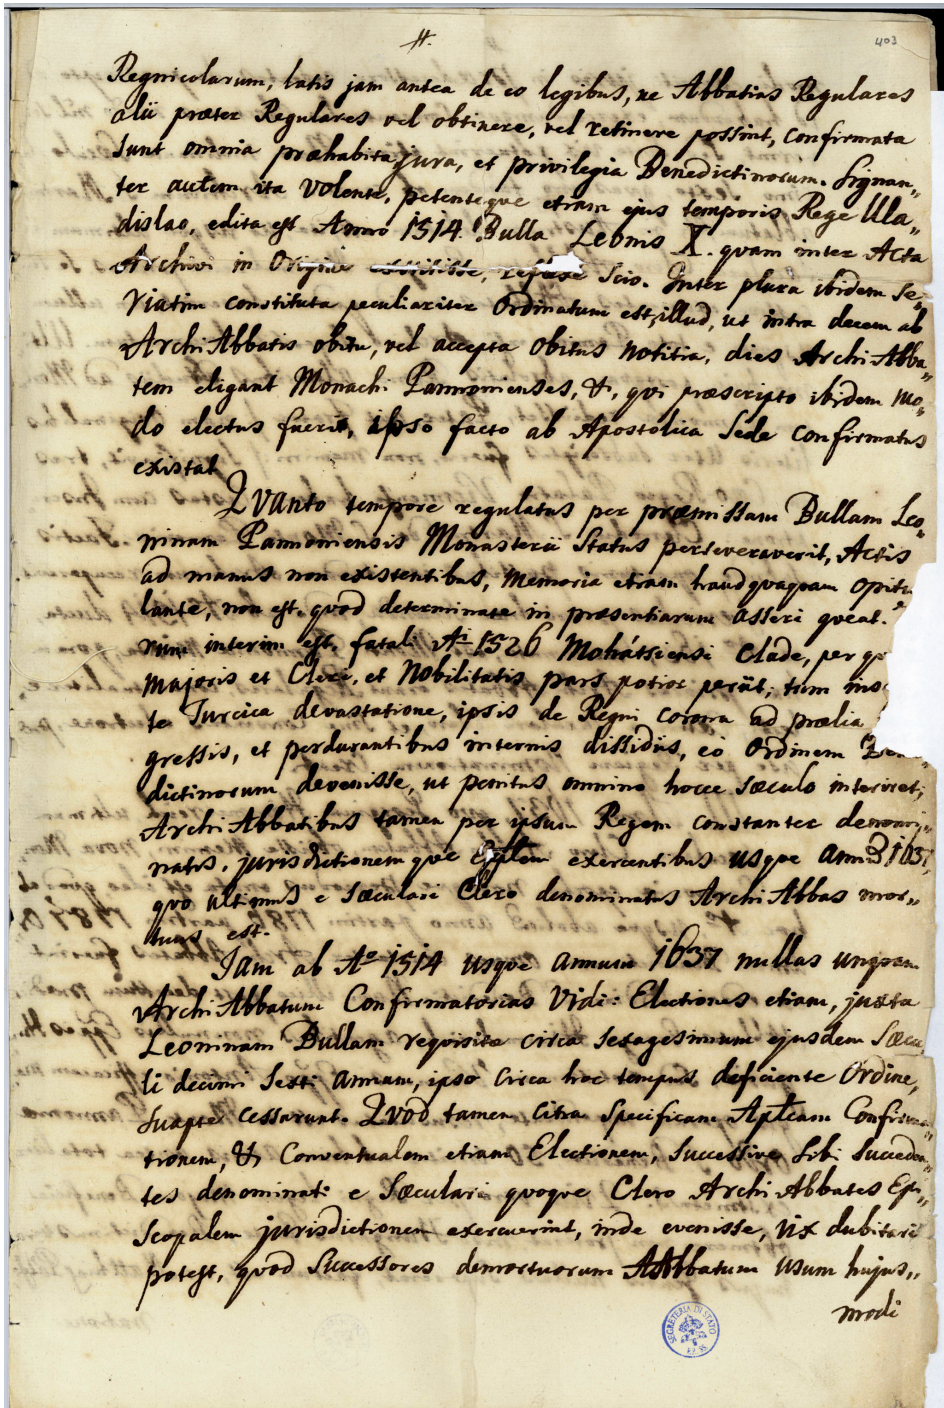 #.
403
Regnicolarum, latis jam antea de eo legibus, ne Abbatias Regulares
alii præter Regulares vel obtinere, vel retinere possint, confirmata
sunt omnia præhabita jura, et privilegia Benedictinorum. Signan„
ter autem ita Volente, petenteque etiam ejus temporis Rege Ula„
dislao, edita est Anno 1514. Bulla Leonis X. quam inter Acta
Archivi in Origine exstitisse, scio. Inter plura ibidem se„
riatim constituta peculiariter Ordinatum est, illud, ut intra decem ab
ArchiAbbatis obitu, vel accepta obitus notitia, dies ArchiAbba„
tem eligant Monachi Pannonienses, &, qui præscripto ibidem mo„
do electus fuerit, ipso facto ab Apostolica Sede confirmatus
existat.
Quanto tempore regulatus per præmissam Bullam Leo„
ninam Pannoniensis Monasterii Status perseveraverit, Actis
ad manus non existentibus, memoria etiam haudquaquam opitu
lante, non est, quod determinate in præsentiarum asseri queat.
nim interim est, fatali Ai 1526 Mohátsiensi Clade, per
majoris et Cleri, et Nobilitatis pars potior periit; tum
te Turcica devastatione, ipsis de Regni corona ad prælia
gressis, et perdurantibus internis dissidiis, eo Ordinem Bene„
dictinorum devenisse, ut penitus omnino hocce sæculo interiret;
ArchiAbbatibus tamen per ipsum Regem constanter denomi„
natis, jurisdictionemque Epplem exercentibus usque annum 1637,
quo ultimus e sæculari Clero denominatus ArchiAbbas mor„
tuus est.
Jam ab Ao 1514 usque annum 1637 nullas unquam
ArchiAbbatum Confirmatorias Vidi: Electiones etiam, juxta
Leoninam Bullam requisitæ circa sexagesimum ejusdem Sæcu
li decimi sexti annum, ipso circa hoc tempus deficiente Ordine,
suapte cessarunt. Quod tamen citra specificam Aplcam Confirma„
tionem, & Conventualem etiam Electionem, successive sibi succeden„
tes denominati e Sæculari quoque Clero ArchiAbbates Epi„
scopalem jurisdictionem exercuerint, inde evenisse, vix dubitari
potest, quod Successores demortuorum AAbbatum usum hujus„
modi
SEGRETERIA DI STATO